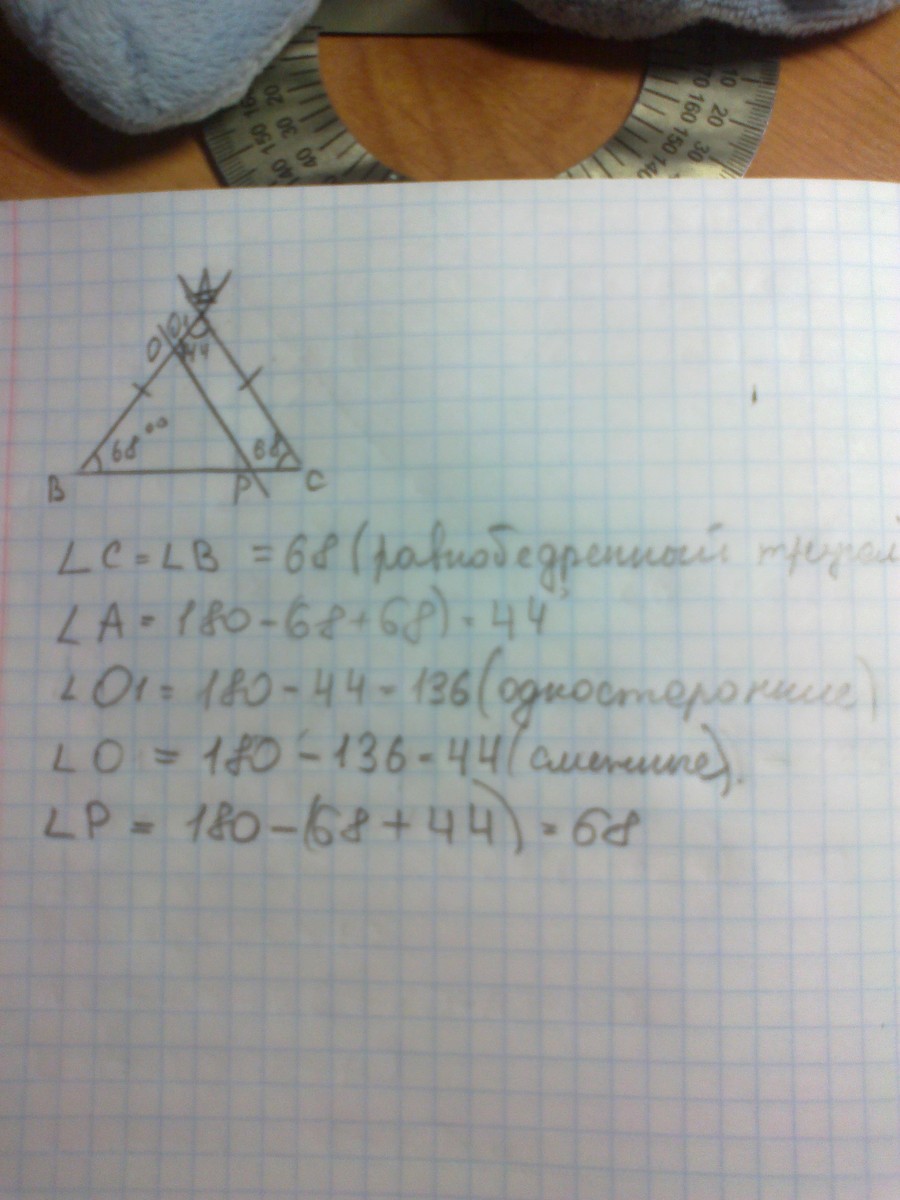 160 150 140 20 30 40
70 160 150 140 10 20 30
A
O O1
44
68°°
68
B
P
C
∠C=∠B = 68 (равнобедренный треугол
∠A = 180-68+68) = 44
∠O1 = 180-44=136 (односторонние)
∠O = 180-136=44 (смежные).
∠P = 180-(68+44) = 68